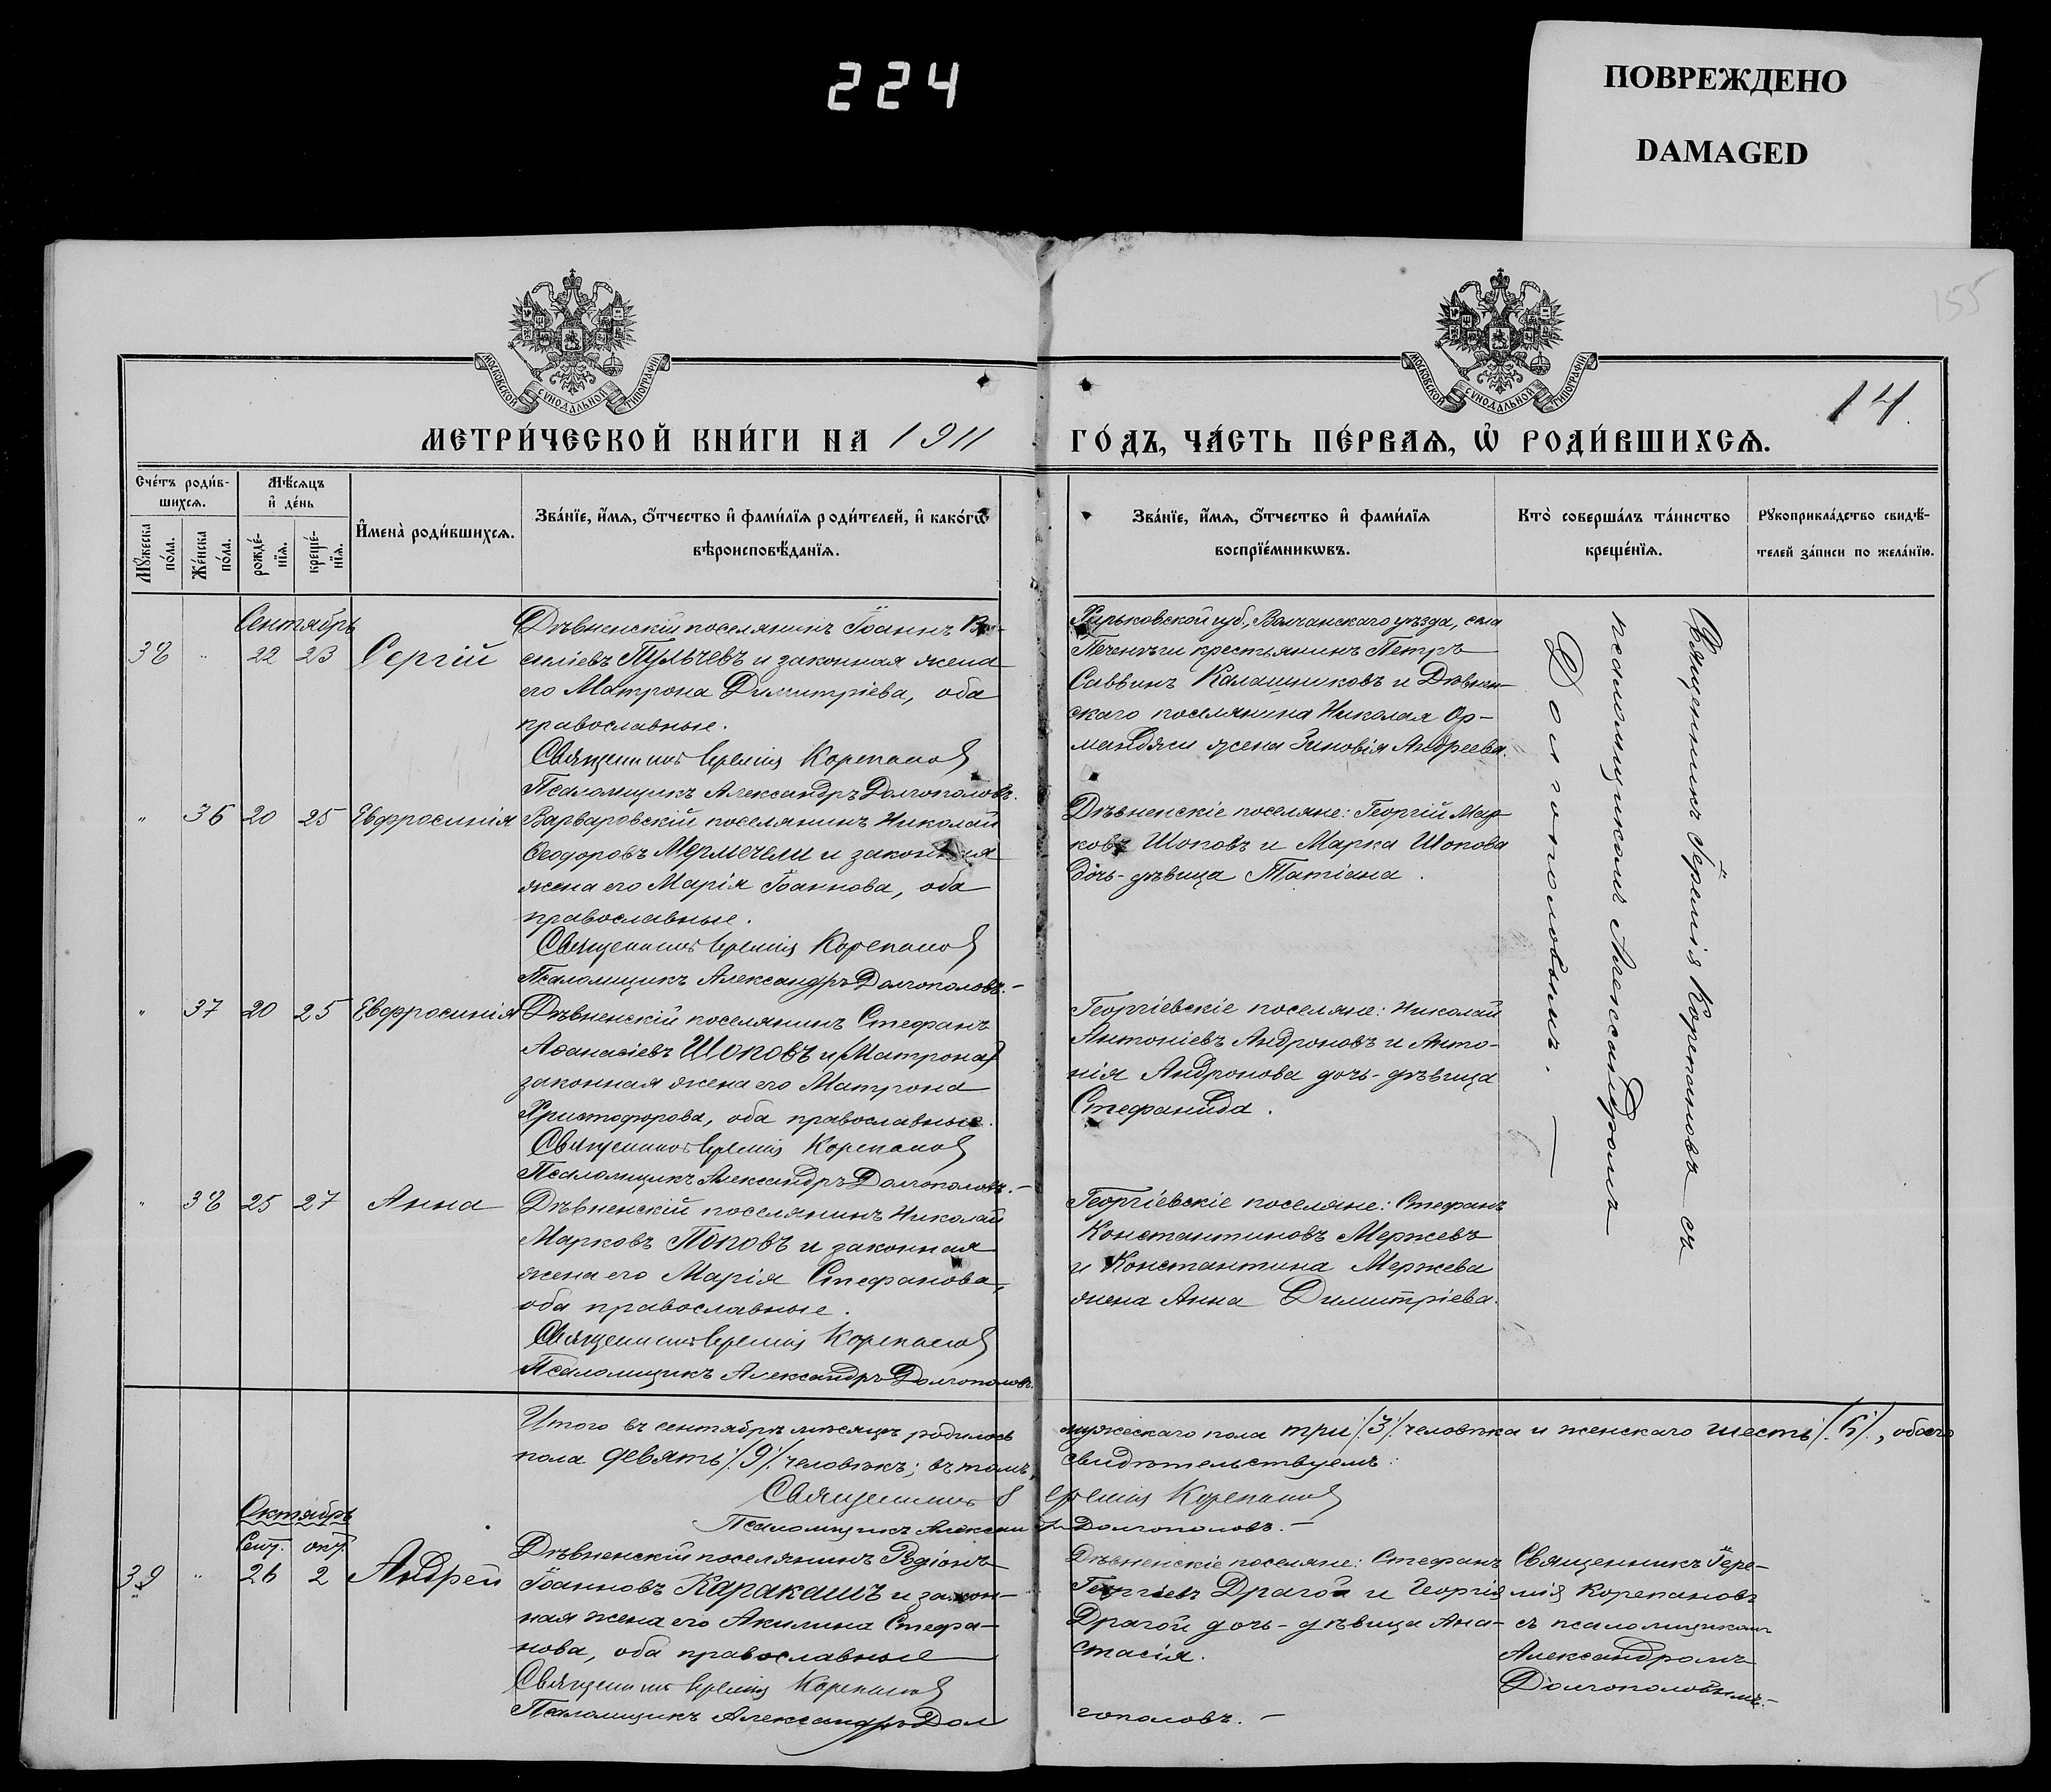 224
ПОВРЕЖДЕНО
DAMAGED
155
МОСКОВСКОЙ СѴНОДАЛЬНОЙ ТИПОГРАФІИ
МОСКОВСКОЙ СѴНОДАЛЬНОЙ ТИПОГРАФІИ
14.
МЕТРИ́ЧЕСКОЙ КНИ́ГИ НА 1911
ГО́ДЪ, ЧА́СТЬ ПЕ́РВАѦ, Ѡ҆ РОДИ́ВШИХСѦ.
Сче́тъ роди́в-
шихсѧ.
Мѣ́сѧцъ
и҆ де́нь
Мꙋ́жеска
по́ла.
Же́нска
по́ла.
рожде́-
нїѧ.
креще́-
нїѧ.
И҆мена̀ роди́вшихсѧ.
Зва́нїе, и҆́мѧ, ѻ҆́тчество и҆ фами́лїѧ роди́телей, и҆ како́гѡ
вѣроисповѣ́данїѧ.
Зва́нїе, и҆́мѧ, ѻ҆́тчество и҆ фами́лїѧ
воспрїе́мникѡвъ.
Кто̀ соверша́лъ та́инство
креще́нїѧ.
Рꙋкоприкла́дство свидѣ́-
телей за́писи по жела́нїю.
Сентябрь
38 " 22 23 Сергій
Дѣвненскій поселянинъ Іоаннъ Ва-
силіевъ Пульчевъ и законная жена
его Матрона Димитріева, оба
православные.
Священникъ Іеремія Корепановъ
Псаломщикъ Александръ Долгополовъ.
Харьковской губ., Волчанскаго уѣзда, села
Печенѣги крестьянинъ Петръ
Саввинъ Калашниковъ и Дѣвнен-
скаго поселянина Николая Ор-
манджи жена Зиновія Андреева.
" 36 20 25 Евфросинія
Варваровскій поселянинъ Николай
Ѳеодоровъ Мермечели и законная
жена его Марія Іоаннова, оба
православные.
Священникъ Іеремія Корепановъ
Псаломщикъ Александръ Долгополовъ.-
Дѣвненскіе поселяне: Георгій Мар-
ковъ Шоповъ и Марка Шопова
дочь-дѣвица Татіана.
" 37 20 25 Евфросинія
Дѣвненскій поселянинъ Стефанъ
Аѳанасіевъ Шоповъ и (Матрона)
законная жена его Матрона
Христофорова, оба православные.
Священникъ Іеремія Корепановъ
Псаломщикъ Александръ Долгополовъ.-
Георгіевскіе поселяне: Николай
Антоніевъ Андроновъ и Анто-
нія Андронова дочь-дѣвица
Стефанида.
" 38 25 27 Анна
Дѣвненскій поселянинъ Николай
Марковъ Поповъ и законная
жена его Марія Стефанова,
оба православные.
Священникъ Іеремія Корепановъ
Псаломщикъ Александръ Долгополовъ.
Георгіевскіе поселяне: Стефанъ
Константиновъ Мержевъ
и Константина Мержева
жена Анна Димитріева.
Священникъ Іеремія Корепановъ съ
псаломщикомъ Александромъ
Долгополовымъ. —
Итого въ сентябрѣ мѣсяцѣ родилось мужескаго пола три /3/ человѣка и женскаго шесть /6/, обоего
пола девять /9/ человѣкъ; въ томъ свидѣтельствуемъ:
Священникъ Іеремія Корепановъ
Псаломщикъ Александръ Долгополовъ.-
Октябрь
Сент. окт.
39 " 26 2 Андрей
Дѣвненскій поселянинъ Родіонъ
Іоанновъ Каракашъ и закон-
ная жена его Акилина Стефа-
нова, оба православные
Священникъ Іеремія Корепановъ
Псаломщикъ Александръ Долгополовъ.-
Дѣвненскіе поселяне: Стефанъ
Георгіевъ Драгой и Георгія
Драгой дочь-дѣвица Ана-
стасія.
Священникъ Іере-
мія Корепановъ
съ псаломщикомъ
Александромъ
Долгополовымъ.-